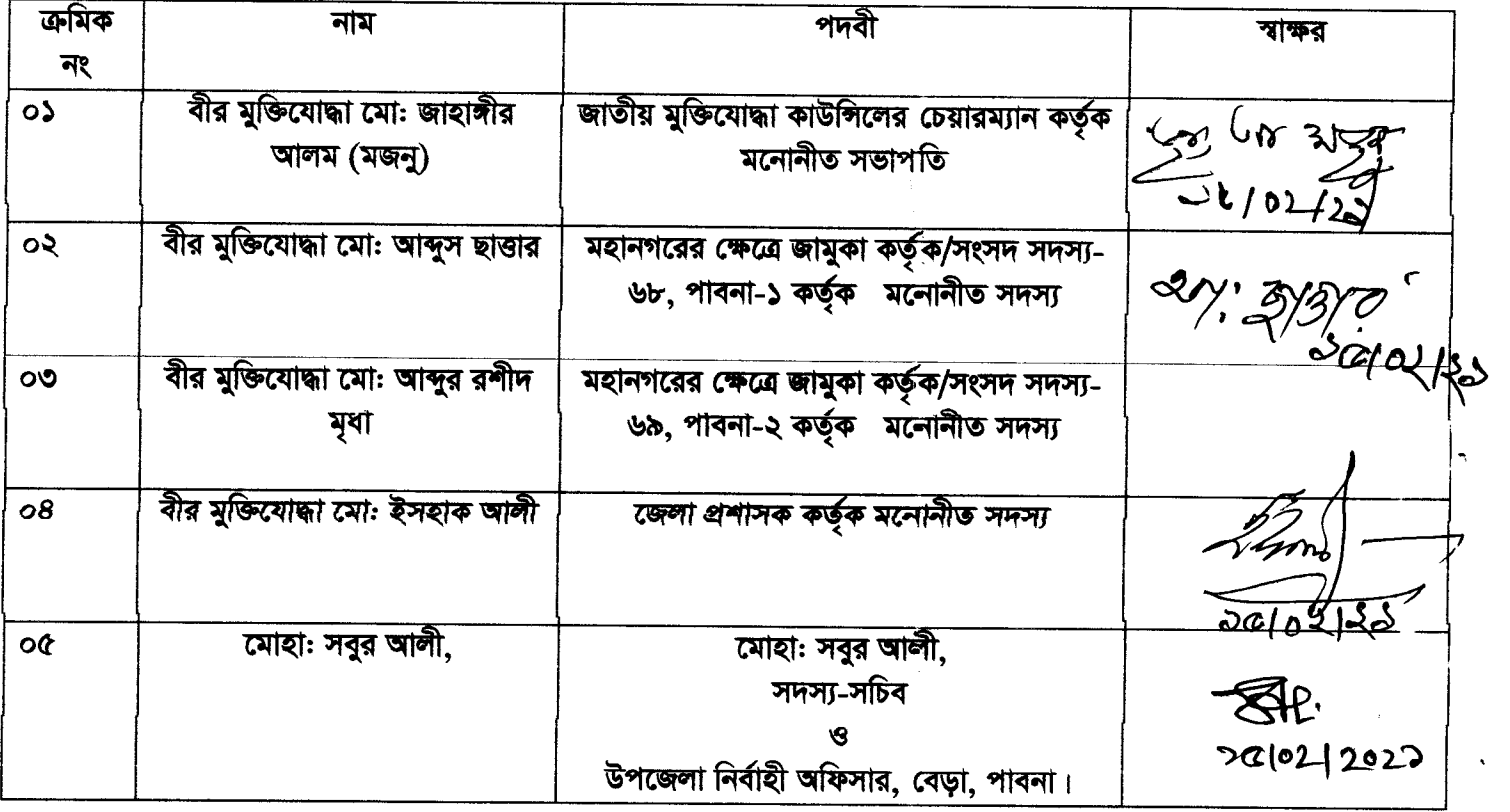 ক্রমিক নং নাম পদবী স্বাক্ষর
০১ বীর মুক্তিযোদ্ধা মো: জাহাঙ্গীর জাতীয় মুক্তিযোদ্ধা কাউন্সিলের চেয়ারম্যান কর্তৃক
আলম (মজনু) মনোনীত সভাপতি
০২ বীর মুক্তিযোদ্ধা মো: আব্দুস ছাত্তার মহানগরের ক্ষেত্রে জামুকা কর্তৃক/সংসদ সদস্য-
৬৮, পাবনা-১ কর্তৃক মনোনীত সদস্য
আ: ছাত্তার
১৫/০২/২১
০৩ বীর মুক্তিযোদ্ধা মো: আব্দুর রশীদ মহানগরের ক্ষেত্রে জামুকা কর্তৃক/সংসদ সদস্য-
মৃধা ৬৯, পাবনা-২ কর্তৃক মনোনীত সদস্য
০৪ বীর মুক্তিযোদ্ধা মো: ইসহাক আলী জেলা প্রশাসক কর্তৃক মনোনীত সদস্য
১৫/০২/২১
০৫ মোহা: সবুর আলী, মোহা: সবুর আলী,
সদস্য-সচিব
ও
উপজেলা নির্বাহী অফিসার, বেড়া, পাবনা।
১৫/০২/২০২১